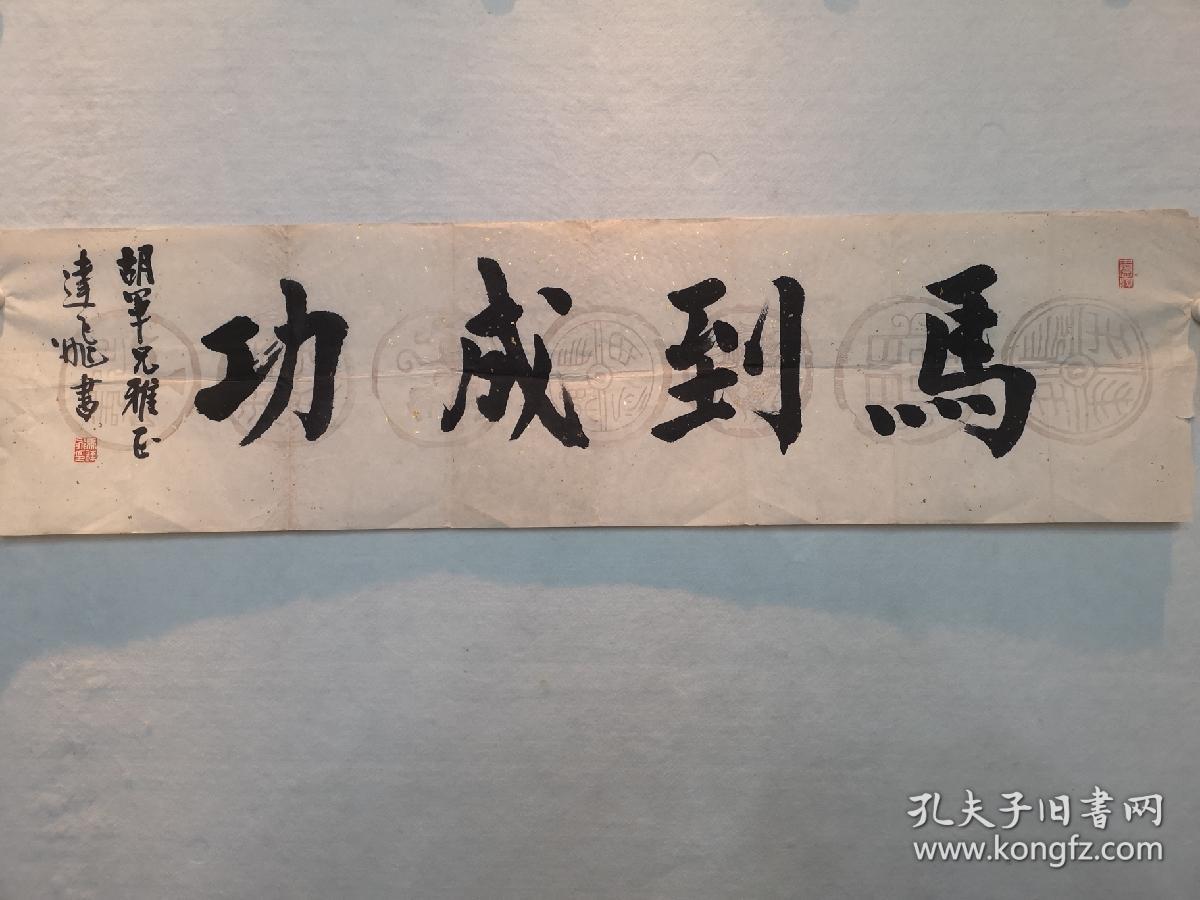 馬到成功
胡軍兄雅正
達飛書
孔夫子旧书网
www.kongfz.com